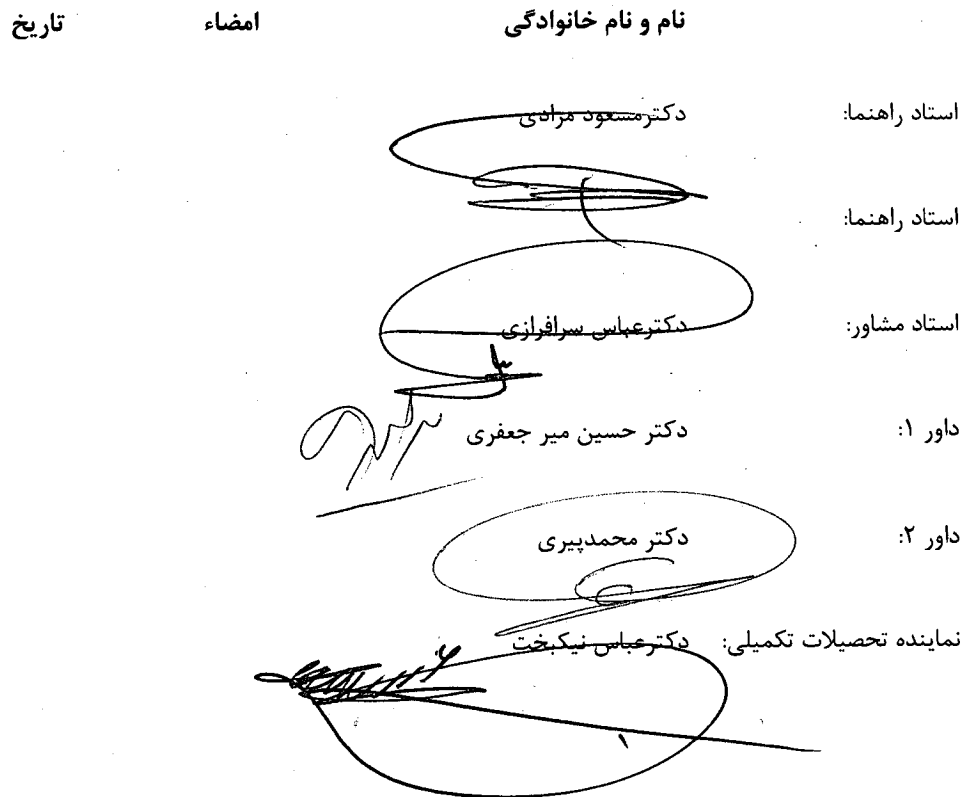 نام و نام خانوادگی امضاء تاریخ
استاد راهنما: دکترمسعود مرادی
استاد راهنما:
استاد مشاور: دکترعباس سرافرازی
داور ۱: دکتر حسین میر جعفری
داور ۲: دکتر محمدپیری
نماینده تحصیلات تکمیلی: دکترعباس نیکبخت